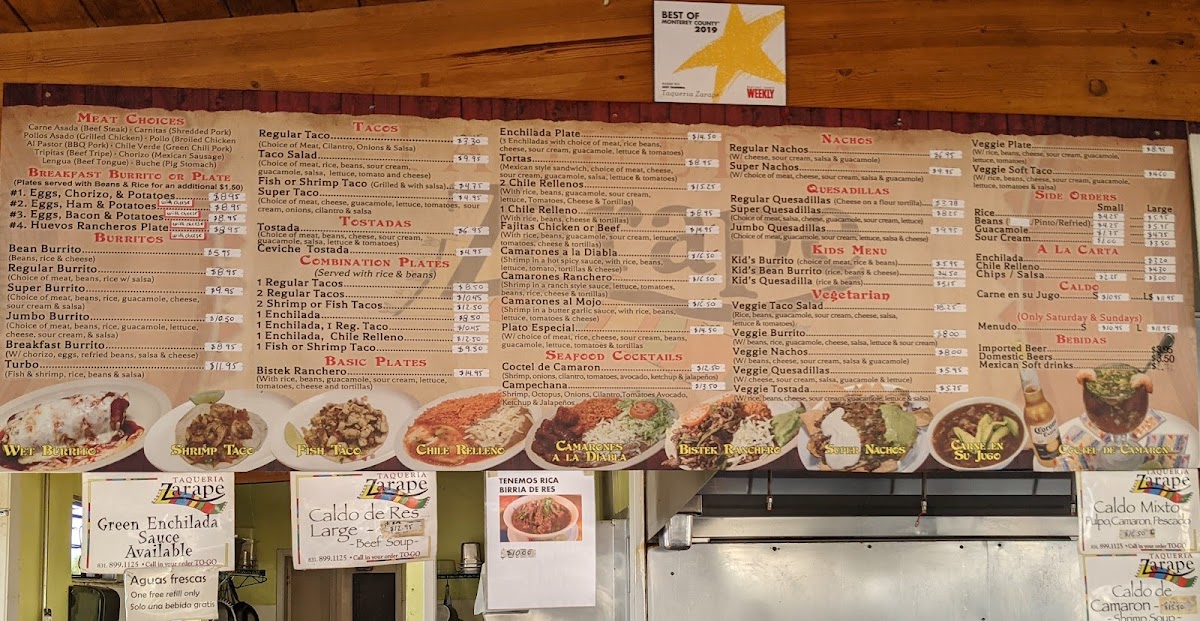 BEST OF
MONTEREY COUNTY
2019
Taqueria Zarape
WEEKLY
MEAT CHOICES
Carne Asada (Beef Steak) - Carnitas (Shredded Pork)
Pollos Asado (Grilled Chicken) - Pollo (Broiled Chicken
Al Pastor (BBQ Pork) - Chile Verde (Green Chili Pork)
Tripitas (Beef Tripe) - Chorizo (Mexican Sausage)
Lengua (Beef Tongue) - Buche (Pig Stomach)
BREAKFAST BURRITO OR PLATE
(Plates served with Beans & Rice for an additional $1.50)
#1. Eggs, Chorizo, & Potatoes $8.95
with cheese
#2. Eggs, Ham & Potatoes $8.95
with cheese
#3. Eggs, Bacon & Potatoes $8.95
with cheese
#4. Huevos Rancheros Plate $8.95
with cheese
BURRITOS
Bean Burrito $5.75
(Beans, rice & cheese)
Regular Burrito $8.95
(Choice of meat, beans, rice w/ salsa)
Super Burrito $9.95
(Choice of meat, beans, rice, guacamole, cheese,
sour cream & salsa)
Jumbo Burrito $10.50
(Choice of meat, beans, rice, guacamole, lettuce,
cheese, sour cream, & salsa)
Breakfast Burrito $8.95
(W/ chorizo, eggs, refried beans, salsa & cheese)
Turbo $11.95
(Fish & shrimp, rice, beans & salsa)
TACOS
Regular Taco $3.30
(Choice of Meat, Cilantro, Onions & Salsa)
Taco Salad $9.95
(Choice of meat, rice, beans, sour cream,
guacamole, salsa, lettuce, tomato and cheese)
Fish or Shrimp Taco (Grilled & with salsa) $4.75
Super Taco $4.95
(Choice of meat, guacamole, lettuce, tomatoes, sour
cream, onions, cilantro & salsa
TOSTADAS
Tostada $6.95
(Choice of meat, beans, cheese, sour cream,
guacamole, salsa, lettuce & tomatoes)
Ceviche Tostada $4.95
COMBINATION PLATES
(Served with rice & beans)
1 Regular Tacos $8.50
2 Regular Tacos $10.45
2 Shrimp or Fish Tacos $12.50
1 Enchilada $8.50
1 Enchilada, 1 Reg. Taco $10.45
1 Enchilada, Chile Relleno $12.50
1 Fish or Shrimp Taco $9.50
BASIC PLATES
Bistek Ranchero $14.95
(With rice, beans, guacamole, sour cream, lettuce,
tomatoes, cheese and tortillas)
Enchilada Plate $14.50
(3 Enchiladas with choice of meat, rice beans,
cheese, sour cream, guacamole, lettuce & tomatoes)
Tortas $8.95
(Mexican style sandwich, choice of meat, cheese,
sour cream, salsa, guacamole, lettuce & tomatoes)
2 Chile Rellenos $15.25
(With rice, beans, guacamole, sour cream,
Lettuce, Tomatoes, Cheese & Tortillas)
1 Chile Relleno $8.95
(With rice, beans, guacamole, sour cream, lettuce)
Fajitas Chicken or Beef $14.95
(With rice, beans, guacamole, sour cream, lettuce,
tomatoes, cheese & tortillas)
Camarones a la Diabla $16.50
(Shrimp in a hot spicy sauce, with rice, beans,
lettuce, tomato, tortillas & cheese)
Camarones Ranchero $16.50
(Shrimp in a ranch style sauce, lettuce, tomatoes,
beans, rice, cheese & tortillas)
Camarones al Mojo $16.50
(Shrimp in a butter garlic sauce, with rice, beans,
lettuce, tomatoes & cheese)
Plato Especial $14.50
(Choice of meat, sour cream, rice, beans, cheese,
guacamole, lettuce, tomatoes & tortillas
SEAFOOD COCKTAILS
Coctel de Camaron $12.50
(Shrimp, onions, cilantro, tomatoes, avocado, ketchup & jalapeños)
Campechana $13.50
(Shrimp, Octopus, Onions, Cilantro, Tomatoes Avocado,
Ketchup & Jalapeños
NACHOS
Regular Nachos $6.95
(W/ cheese, sour cream, salsa & guacamole)
Super Nachos $9.95
(W/ choice of meat, cheese, sour cream, salsa & guacamole)
QUESADILLAS
Regular Quesadillas (Cheese on a flour tortilla) $3.78
Super Quesadillas $8.25
(Choice of meat, salsa, cheese, guacamole, sour cream, lettuce)
Jumbo Quesadillas $9.95
(Choice of meat, guacamole, sour cream, lettuce, cheese & salsa)
KIDS MENU
Kid's Burrito (choice of meat, rice & beans) $5.95
Kid's Bean Burrito (rice, beans & cheese) $4.50
Kid's Quesadilla (rice & beans) $5.15
Vegetarian
Veggie Taco Salad $8.25
(Rice, beans, guacamole, sour cream, cheese, salsa,
lettuce & tomatoes)
Veggie Burrito $8.00
(W/ beans, rice, guacamole, cheese, salsa, lettuce & sour cream)
Veggie Nachos $8.00
(W/ beans, cheese, sour cream, salsa & guacamole)
Veggie Quesadillas $5.95
(W/ cheese, sour cream, salsa, lettuce & guacamole)
Veggie Tostada $5.75
(W/ rice, beans, guacamole, cheese, sour cream, guacamole, lettuce & salsa)
Veggie Plate $8.95
(With rice, beans, cheese, sour cream, guacamole,
lettuce, tomatoes & salsa)
Veggie Soft Taco $4.50
(W/ rice, beans, cheese, sour cream, guacamole,
tomatoes, lettuce & salsa)
SIDE ORDERS
Small Large
Rice $4.25 $5.95
Beans /Pinto/Refried) $4.25 $5.95
Guacamole $4.75
Sour Cream $1.00 $3.50
A LA CARTA
Enchilada $3.20
Chile Relleno $4.30
Chips / Salsa $2.25 $3.00
CALDO
Carne en su Jugo S $10.95 L $11.95
(Only Saturday & Sundays)
Menudo S $10.45 L $11.95
BEBIDAS
Imported Beer
Domestic Beers $3.50
Mexican Soft drinks
Zarape
WET BURRITO
SHRIMP TACO
FISH TACO
CHILE RELLENO
CAMARONES
A LA DIABLA
BISTEK RANCHERO
SUPER NACHOS
CARNE EN
SU JUGO
COCTEL DE CAMARON
Corona
TAQUERIA
Zarape
Green Enchilada
Sauce
Available
831.899.1125 • Call in your order TO-GO
Aguas frescas
One free refill only
Solo una bebida gratis
TAQUERIA
Zarape
Caldo de Res
Large - $12.95
-Beef Soup-
831.899.1125 • Call in your order TO-GO
TENEMOS RICA
BIRRIA DE RES
$10.00
TAQUERIA
Zarape
Caldo Mixto
Pulpo, Camaron, Pescado
$16.50
831.899.1125 • Call in your order TO-GO
TAQUERIA
Zarape
Caldo de
Camaron - $15.50
-Shrimp Soup-